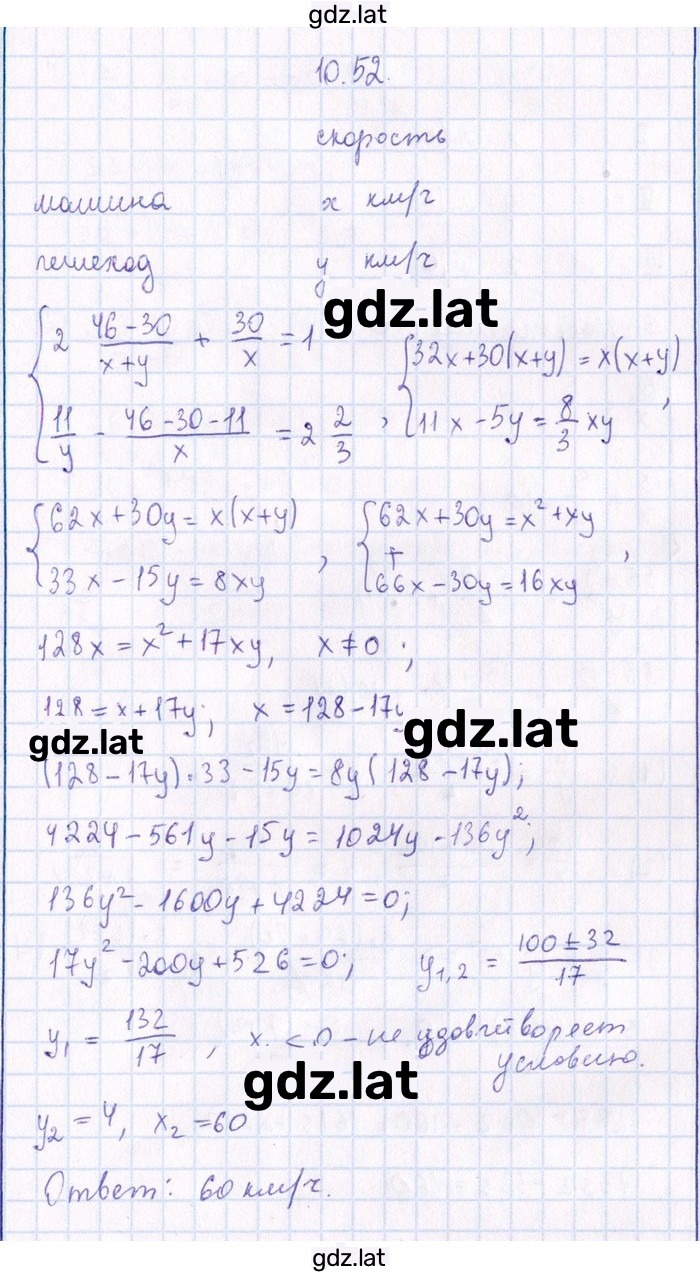 gdz.lat
10.52.
скорость
машина x км/ч
пешеход y км/ч
gdz.lat
{ 2 (46-30)/(x+y) + 30/x = 1
11/y - (46-30-11)/x = 2 2/3 , { 32x+30(x+y) = x(x+y)
11x-5y = 8/3 xy ,
{ 62x+30y = x(x+y)
33x-15y = 8xy , { 62x+30y = x²+xy
+
66x-30y = 16xy ,
128x = x²+17xy, x≠0 ;
128 = x+17y; x = 128-17y
gdz.lat gdz.lat
(128-17y)·33-15y = 8y(128-17y);
4224-561y-15y = 1024y-136y²;
136y²-1600y+4224=0;
17y²-200y+526=0; y₁,₂ = (100±32)/17
y₁ = 132/17 , x. <0 - не удовлетворяет
условию.
gdz.lat
y₂ = 4, x₂ = 60
Ответ: 60 км/ч.
gdz.lat